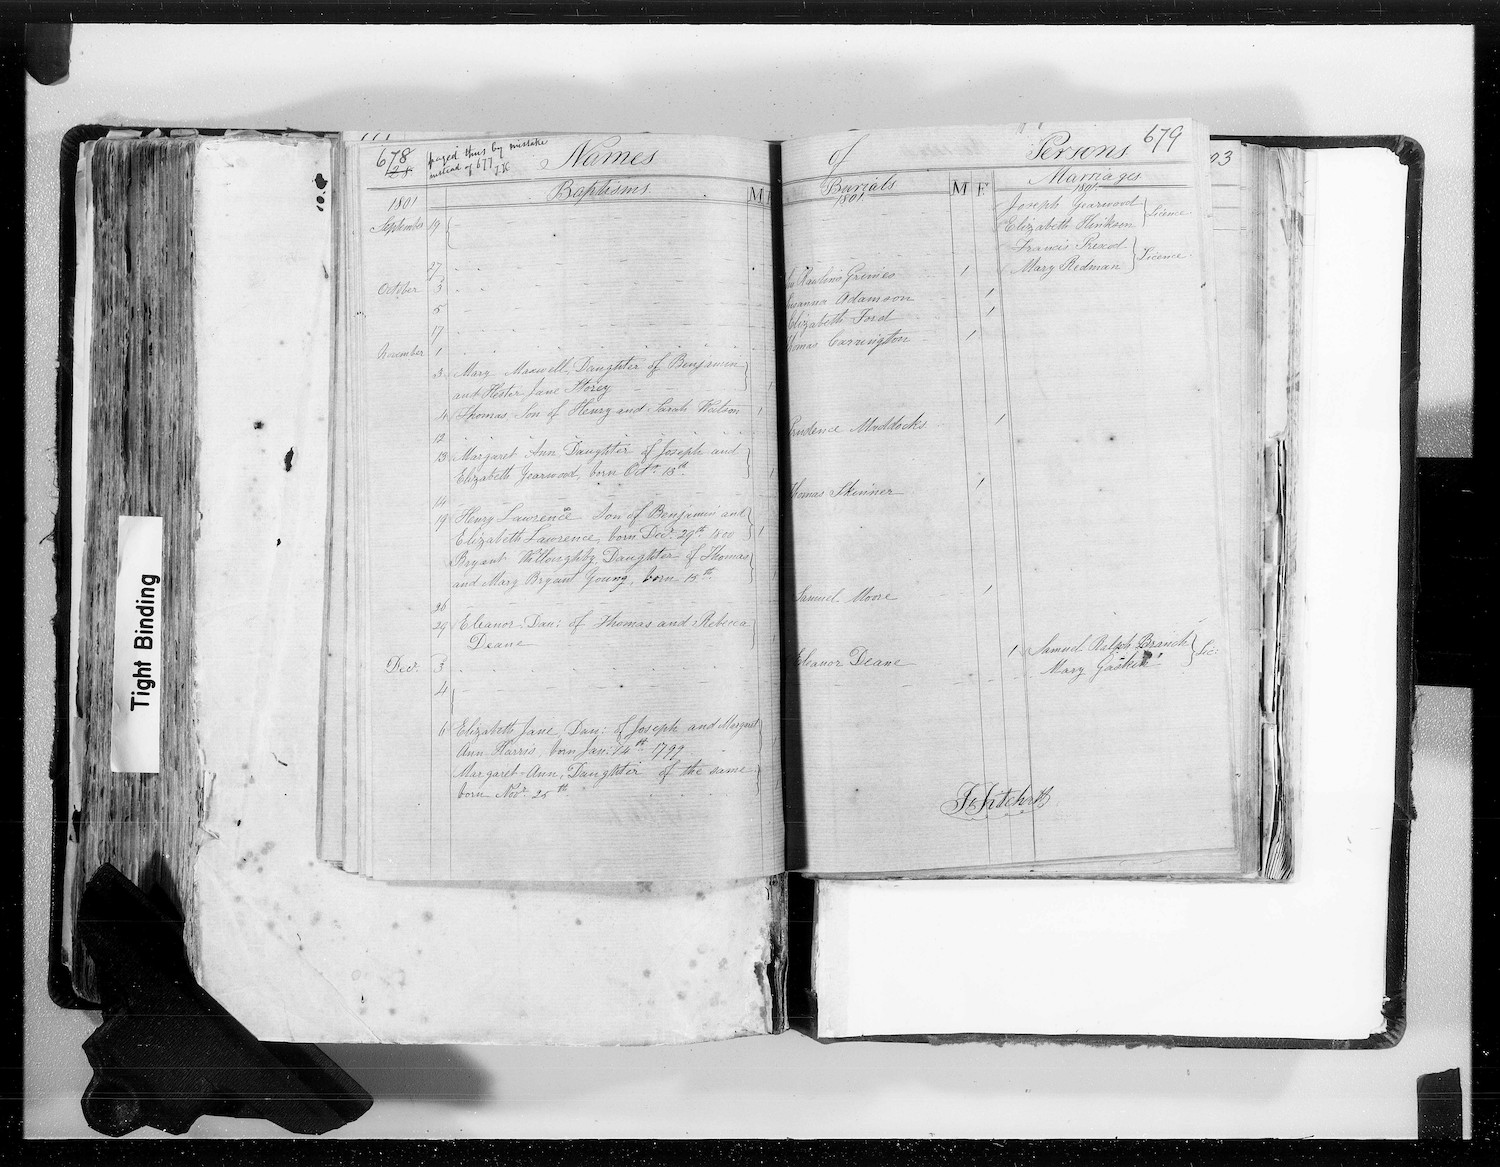 678
paged thus by mistake
instead of 677
Names
Baptisms
M
1801
September 19
27
October 3
5
17
November 1
3 Mary Maxwell, Daughter of Benjamin
and Hester Jane Storey
4 Thomas, Son of Henry and Sarah Watson
12
13 Margaret Ann, Daughter of Joseph and
Elizabeth Yearwood, born Octr. 15th
14
19 Henry Lawrence Son of Benjamin and
Elizabeth Lawrence, born Decr. 29th 1800
Bryant Willoughby, Daughter of Thomas
and Mary Bryant Young, born 15th
26
29 Eleanor, Dau: of Thomas and Rebecca
Deane
Decr. 3
4
6 Elizabeth Jane, Dau: of Joseph and Margaret
Ann Harris, born Jan. 14th 1799
Margaret-Ann, Daughter of the same
born Novr. 25th
of Persons 679
Burials M F Marriages
1801 1801
Joseph Yearwood
Elizabeth Hinkson Licence
Francis Read
Mary Redman Licence
Rawlins Grimes
Adamson
Elizabeth Ford
Thomas Carrington
Prudence Maddocks
Thomas Skinner
Samuel Moore
Samuel Ralph Branch
Mary Gaskin Lic:
Eleanor Deane
93
Tight Binding